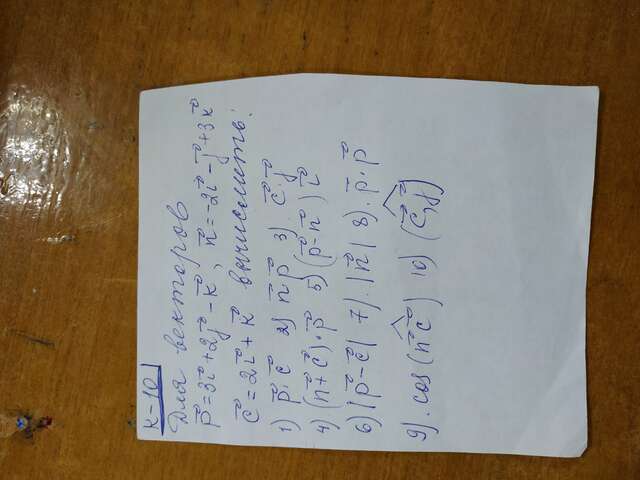 К-10
Для векторов
p⃗ = 3i⃗ + 2j⃗ − k⃗, n⃗ = −2i⃗ − j⃗ + 3k⃗
c⃗ = 2i⃗ + k⃗ вычислить:
1) p⃗·c⃗ 2) n⃗·p⃗ 3). c⃗·j⃗
4) (n⃗ + c⃗)·p⃗ 5) (p⃗ − n⃗) i⃗
6) |p⃗ − c⃗| 7). |n⃗| 8). p⃗·p⃗
9). cos (n⃗ ^ c⃗) 10) (c⃗, ^ j⃗)